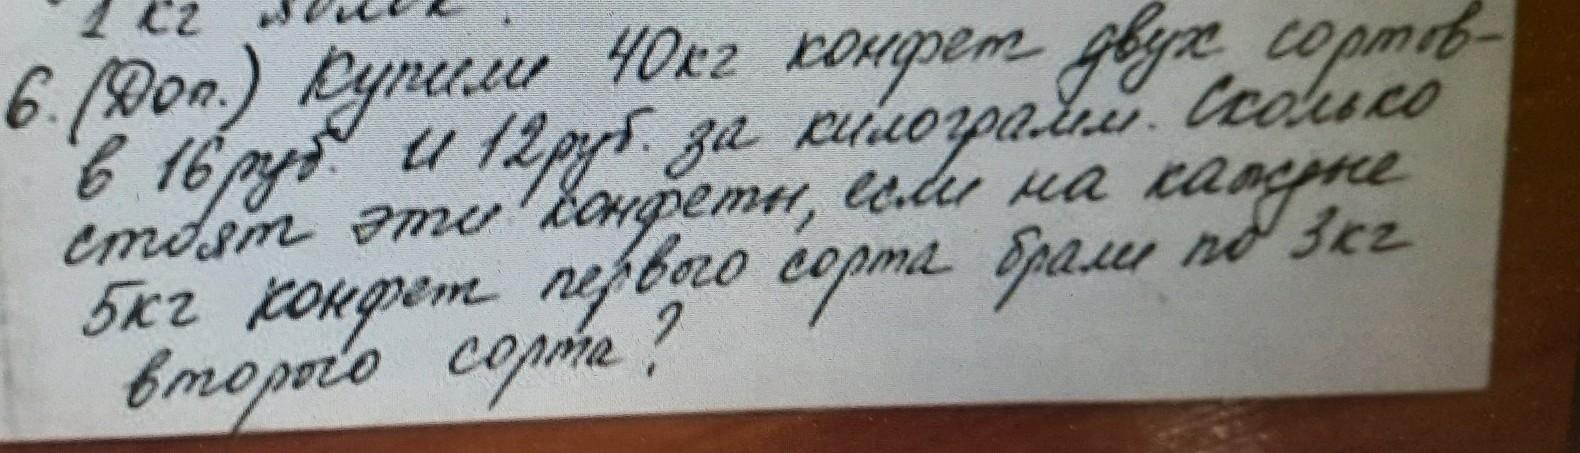 1 кг яблок.
6. (Доп.) Купили 40кг конфет двух сортов-
в 16руб. и 12руб. за килограмм. Сколько
стоят эти конфеты, если на каждые
5кг конфет первого сорта брали по 3кг
второго сорта?